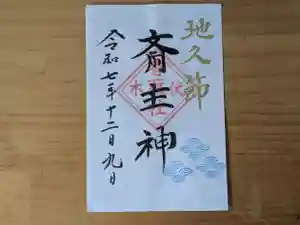 地久節
斎主神
令和七年十二月九日